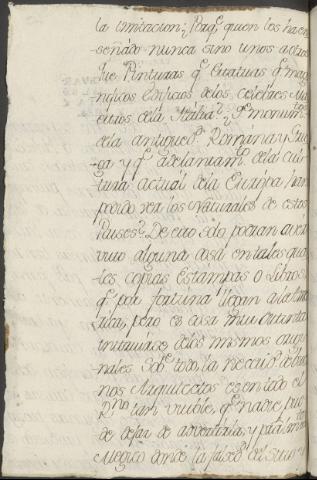 la imitacion; Porq.e quien les ha en
señado nunca sino unos
que Pinturas q.e Esculturas q.e mag
nificos edificios de los celebres Ma
estros de la Italia? q.e monum.tos
de la antigued.d Romana y Grie
ga y q.e adelantam.tos de la cul
tura actual de la Europa han
podido ver los Naturales de estos
Paises? De esto solo podran
alguna cosa en tales qua
les copias Estampas o Libros
q.e por fortuna llegan a la
pero es cosa muy distinta
de los mismos origi
nales Sob.e todo la necesid.d de bue
nos Arquitectos es en todo el
R.no tan visible, q.e nadie pue
de dejar de advertirla, y
Mexico donde la falsed.d del suelo y